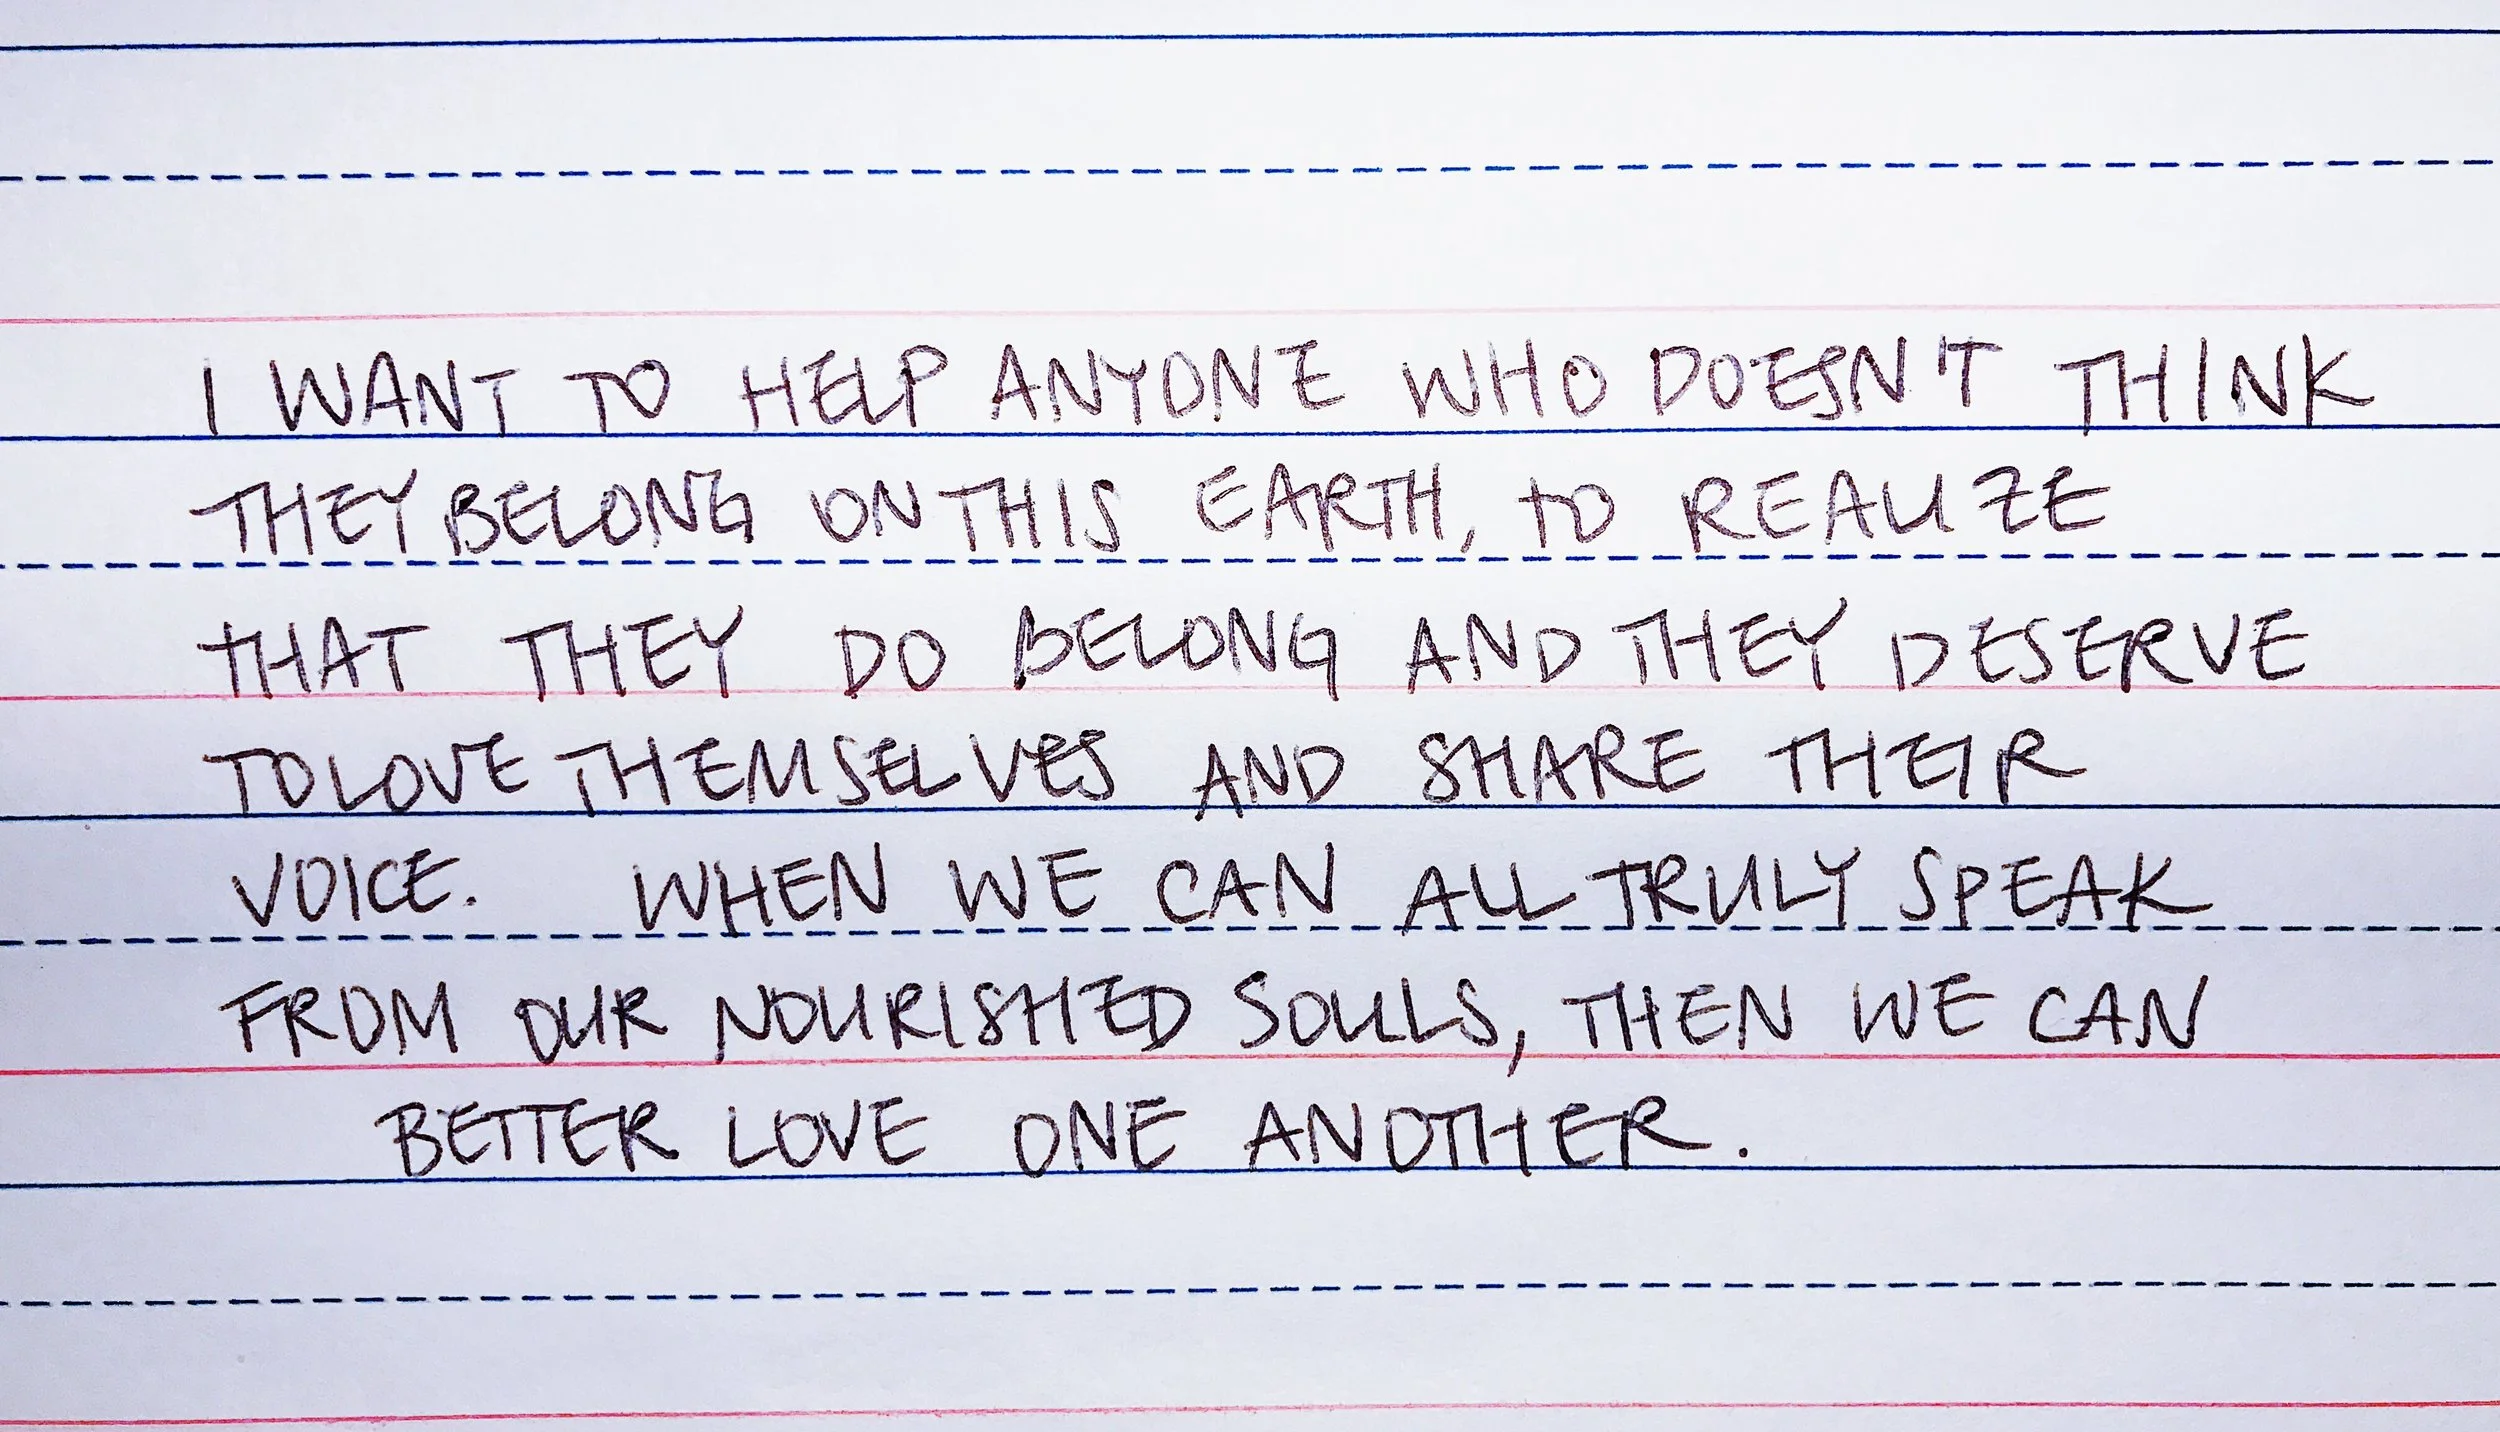 I WANT TO HELP ANYONE WHO DOESN'T THINK
THEY BELONG ON THIS EARTH, TO REALIZE
THAT THEY DO BELONG AND THEY DESERVE
TO LOVE THEMSELVES AND SHARE THEIR
VOICE. WHEN WE CAN ALL TRULY SPEAK
FROM OUR NOURISHED SOULS, THEN WE CAN
BETTER LOVE ONE ANOTHER.